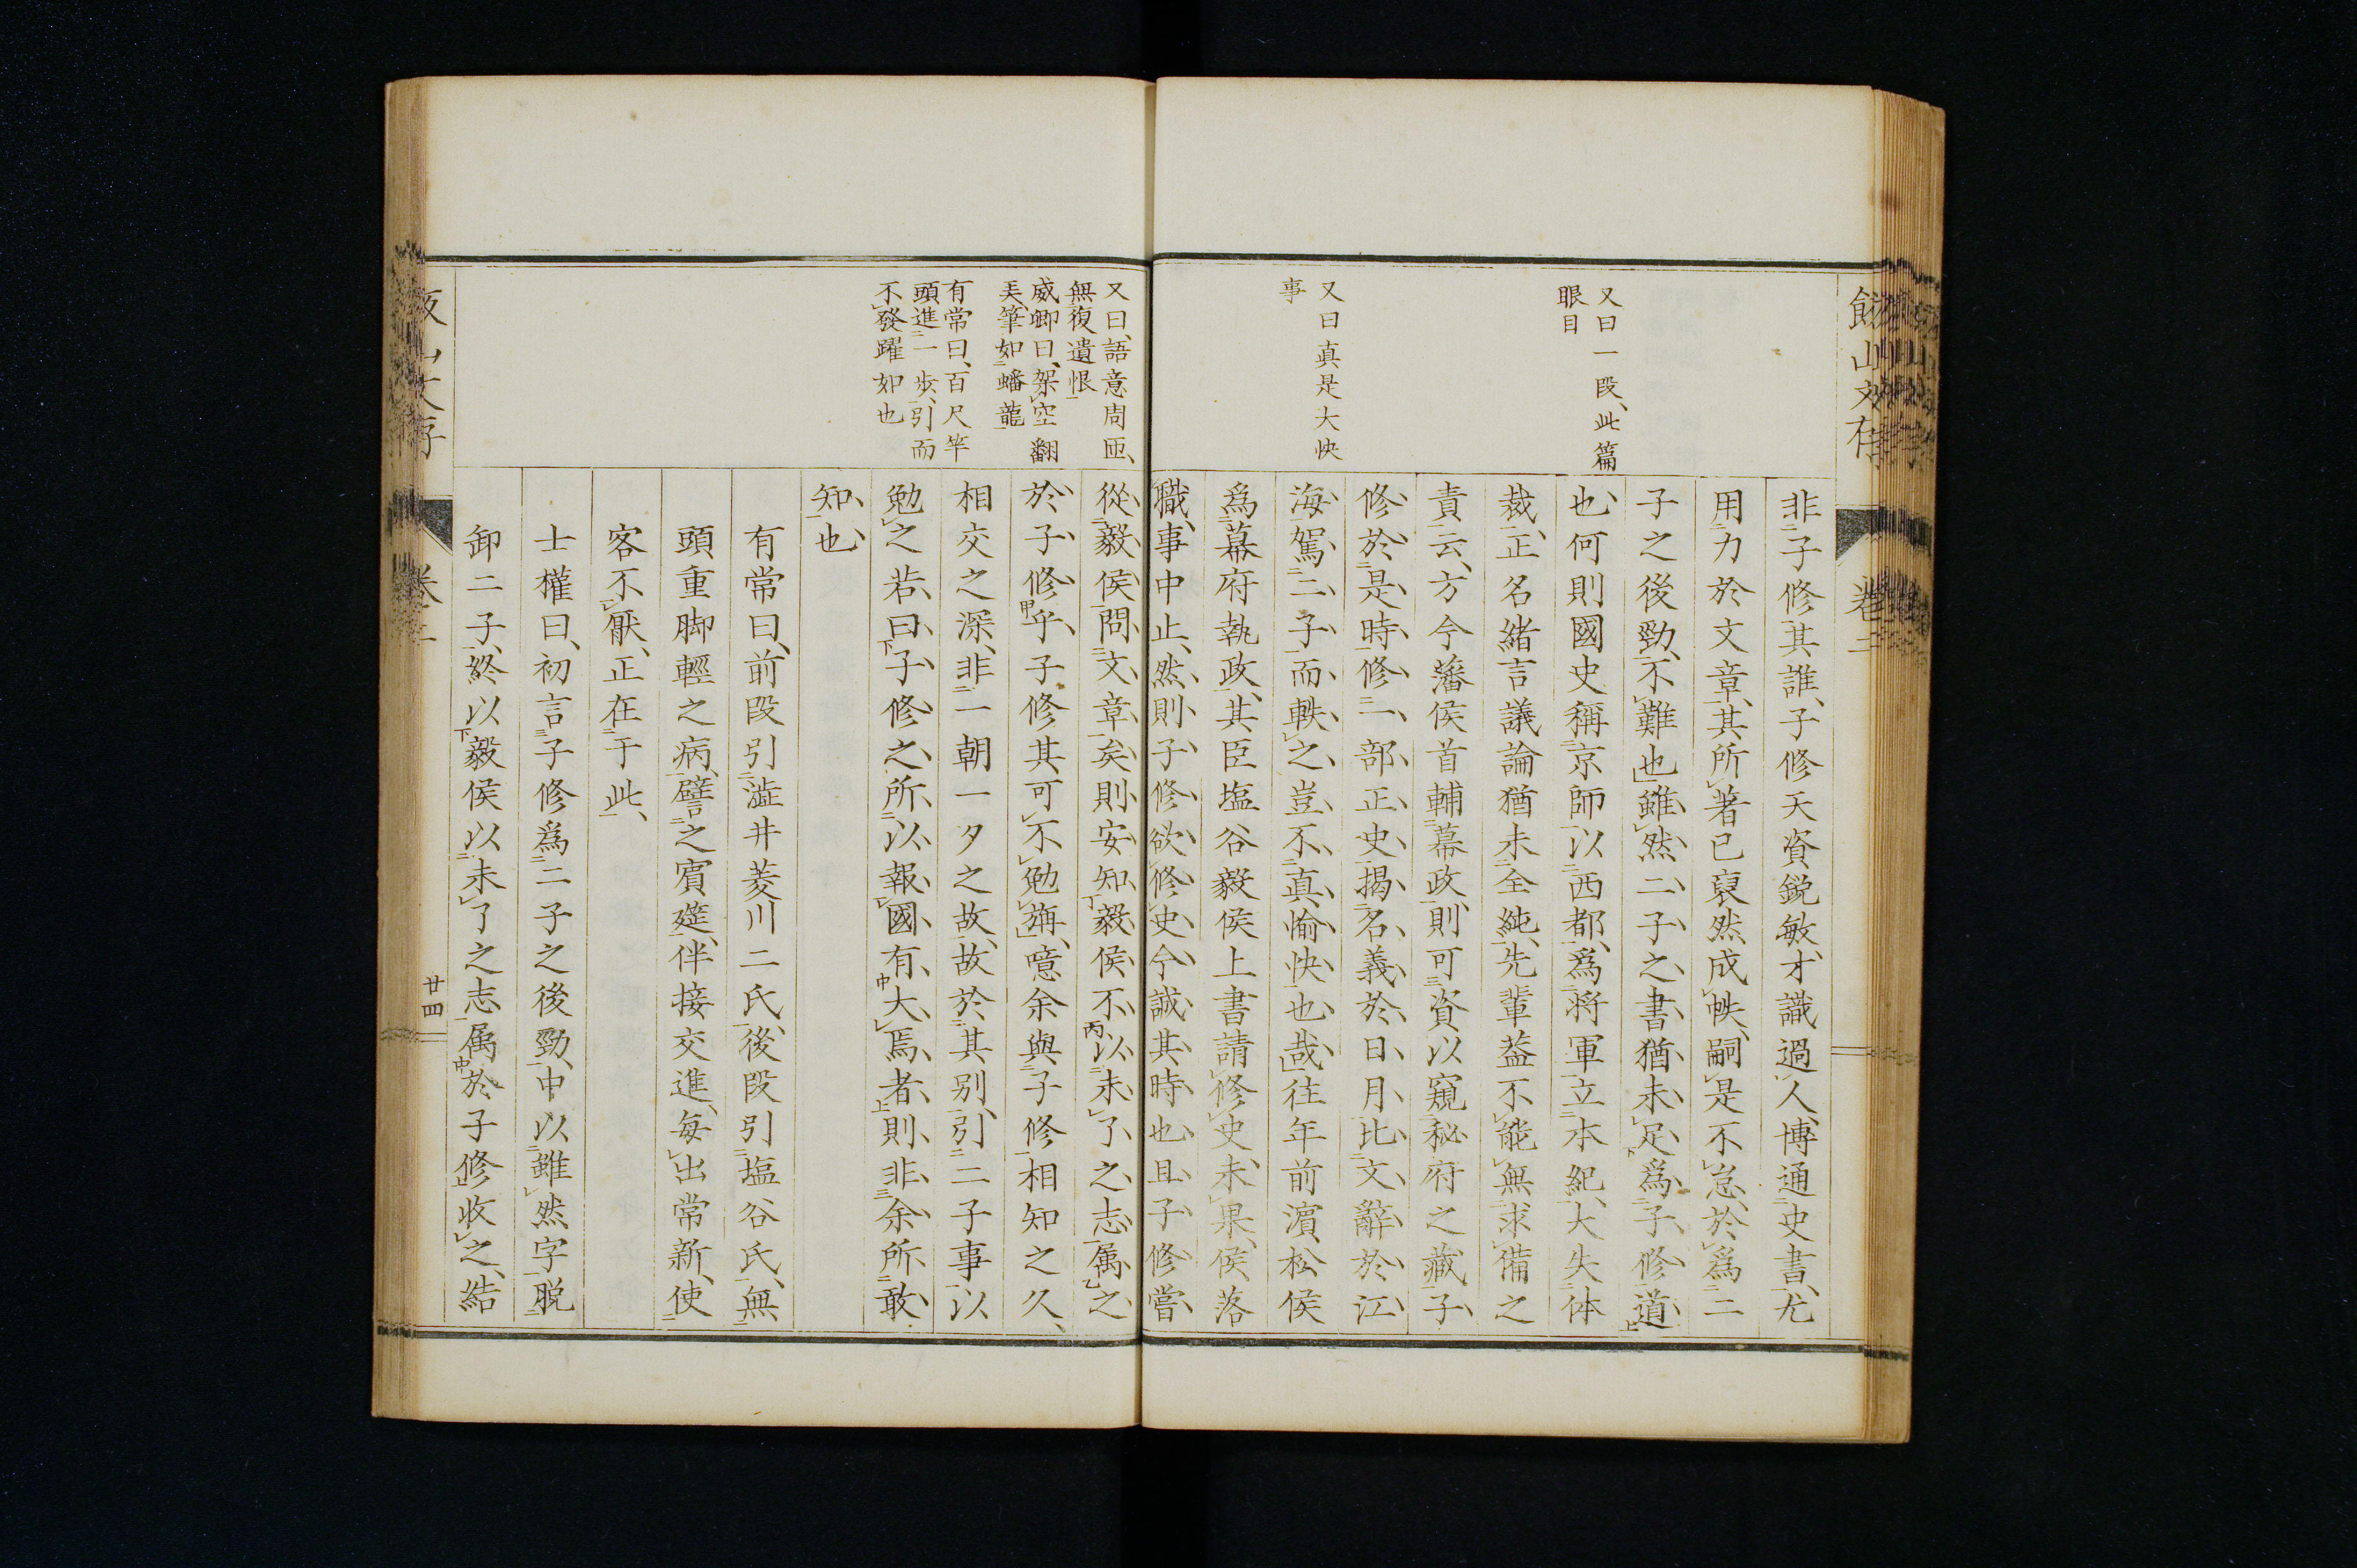 飯山文存
卷二
又曰一段、此篇
眼目
又曰真是大快
事
非子修其誰、子修天資銳敏、才識過人、博通史書、尤
用力於文章、其所著已裒然成帙、嗣是不怠、於爲二
子之後勁、不難也、雖然二子之書、猶未足爲子修道
也、何則國史稱京師以西都、爲將軍立本紀、大失体
裁、正名緒言議論猶未全純、先輩蓋不能無求備之
責云、方今藩侯首輔幕政、則可資以窺秘府之藏、子
修於是時修一部正史、揭名義於日月、比文辭於江
海、駕二子而軼之、豈不真愉快也哉、往年前濵松侯
爲幕府執政、其臣塩谷毅侯上書請修史、未果、侯落
職、事中止、然則子修欲修史、今誠其時也、且子修嘗
又曰、語意周匝、
無復遺恨
威卿曰、架空翻
羙、筆如蟠龍
有常曰、百尺竿
頭進一步、引而
不發躍如也
從毅侯問文章矣、則安知毅侯不以未了之志属之
於子修乎、子修其可不勉旃、噫余與子修相知之久、
相交之深、非一朝一夕之故、故於其别、引二子事以
勉之、若曰子修之所以報國有大焉者、則非余所敢
知也、
有常曰、前段引澁井菱川二氏、後段引塩谷氏、無
頭重脚輕之病、譬之賓筵、伴接交進、每出常新、使
客不厭、正在于此、
士權曰、初言子修爲二子之後勁、中以雖然字脫
卸二子、終以毅侯以未了之志属於子修收之、結
廿四